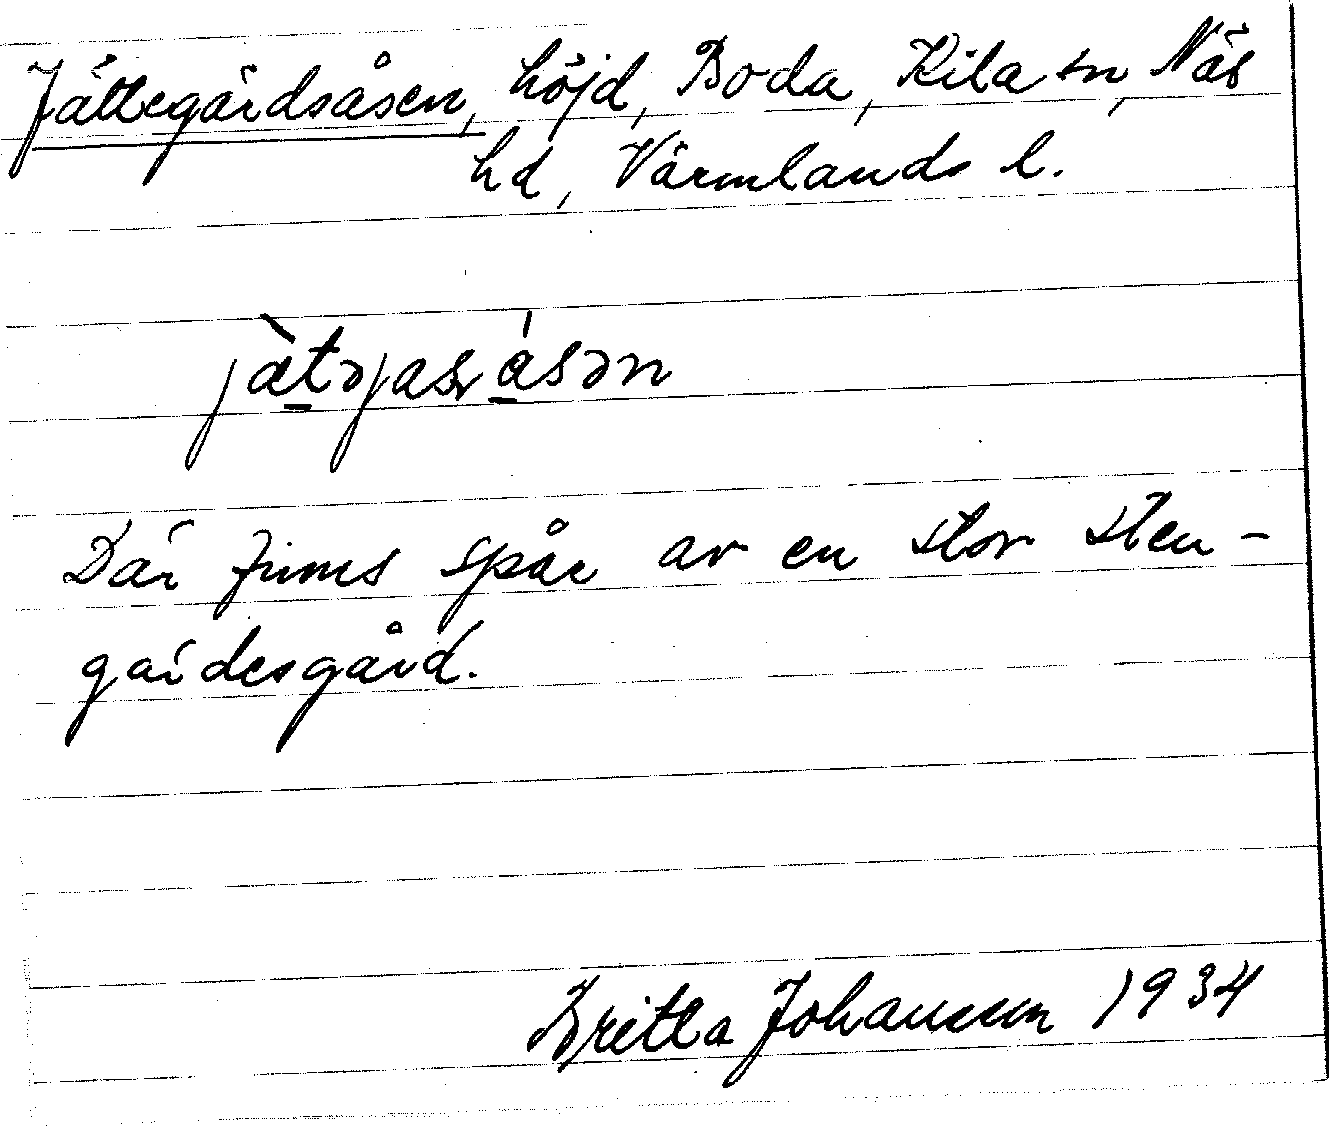 Jättegärdsåsen, höjd, Boda, Kila sn, Näs
hd, Värmlands l.
Där finns spår av en stor sten-
gärdesgård.
Britta Johansson 1934